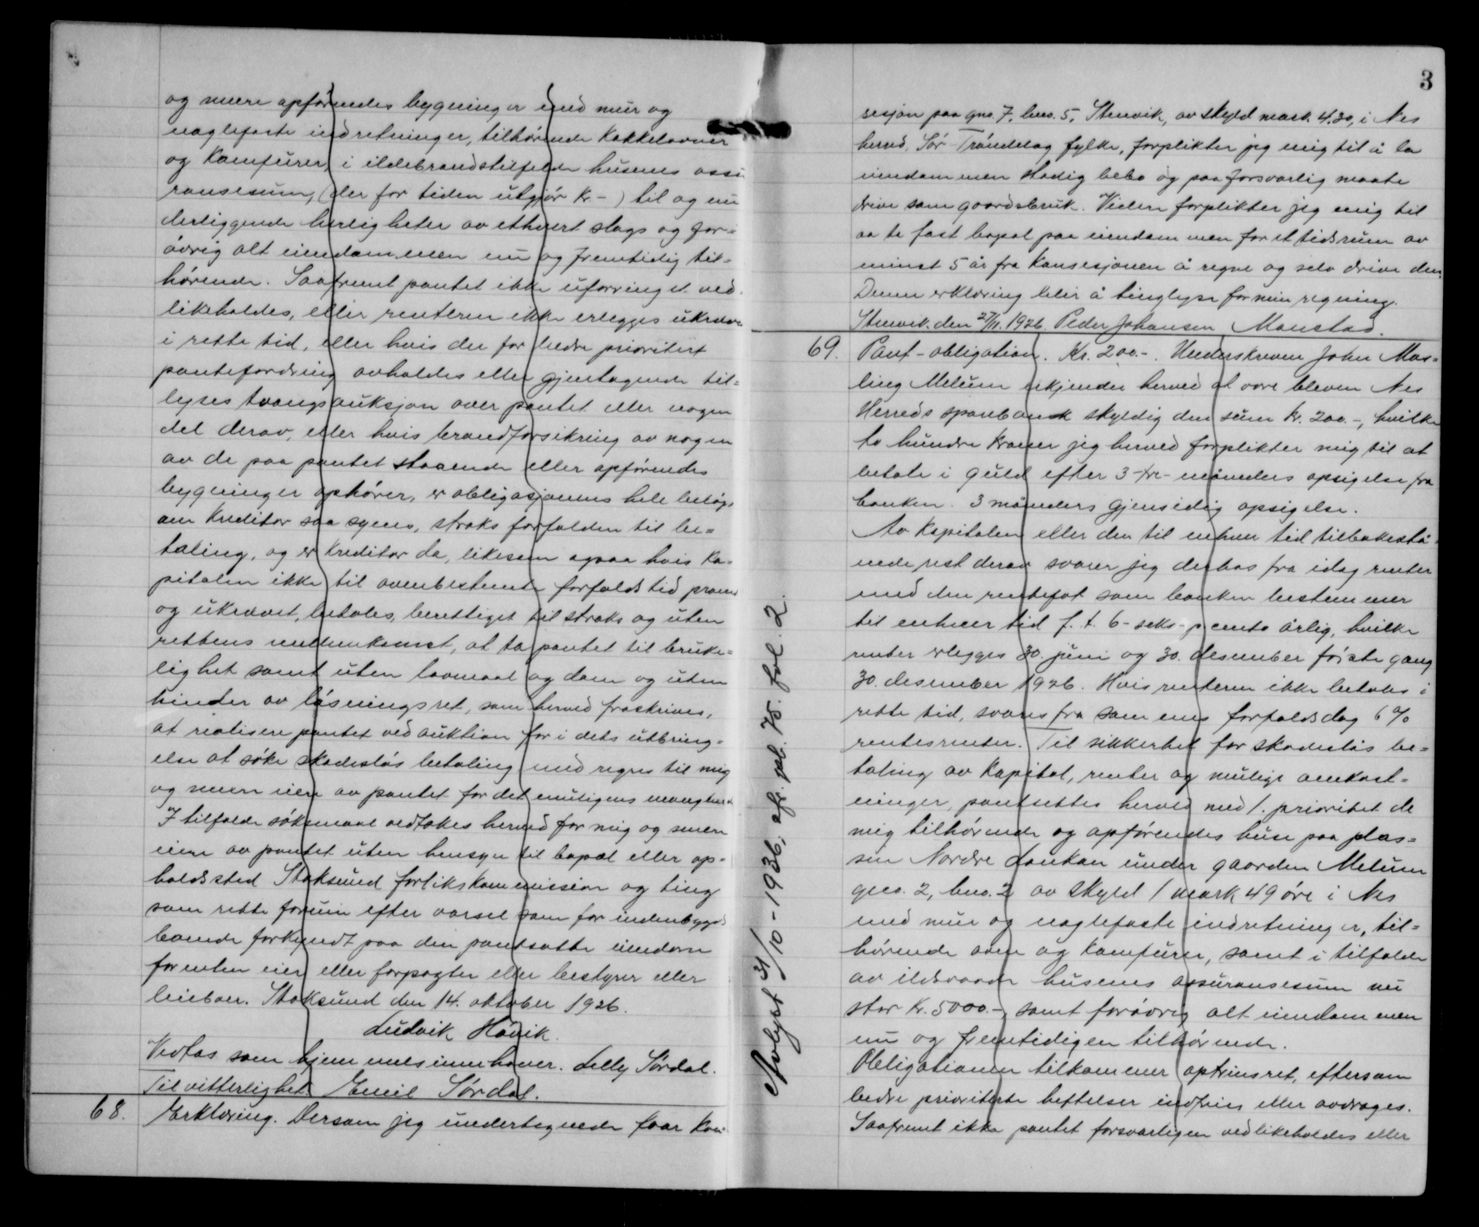 og mere opførendes bygninger med mur og
naglefaste indretninger, tilhørende kakkelovner
og komfurer, i ildebrandstilfælde husenes assu
ransesum, (der for tiden utgjør kr - ) til og un
derliggende herligheter av ethvert slags og for-
øvrig alt eiendommen nu og fremtidig til-
hørende. Saafremt pantet ikke uforringet ved
likeholdes, eller renterne ikke erlegges ukrævet
i rette tid, eller hvis der for bedre prioritert
pantefordring avholdes eller gjentagende til-
lyses tvangsauksjon over pantet eller nogen
del derav, eller hvis brandforsikring av nogen
av de paa pantet staaende eller opførendes
bygninger ophører, er obligasjonens hele beløp
om kreditor saa synes, straks forfalden til be-
taling, og er kreditor da, likesom ogsaa hvis ka-
pitalen ikke til ovenbestemte forfaldstid promt
og ukrævet, betales, berettiget til straks og uten
rettens mellemkomst, at ta pantet til bruke-
lighet samt uten lovmaal og dom og uten
hinder av løsningsret, som herved fraskrives,
at realisere pantet ved auktion for i dets utbring-
else at søke skadesløs betaling med regres til mig
og senere eiere av pantet for det muligens manglende
I tilfælde søksmaal vedtakes herved for mig og senere
eiere av pantet uten hensyn til bopæl eller op-
holdssted Stoksund forlikskommission og ting
som rette forum efter varsel som for indenbygds
boende forkyndt paa den pantsatte eiendom
for enten eier eller forpagter eller bestyrer eller
leieboer. Stoksund den 14. oktober 1926.
Ludvik Hovik.
Vedtas som hjemmelsinnehaver. Lelly Sørdal.
Til vitterlighet Emil Sørdal.
68. Erklæring. Dersom jeg undertegnede faar kon-
3
sesjon paa gno. 7, bno. 5, Stenvik, av skyld mark 4.30, i Nes
herred, Sør-Trøndelag fylke, forplikter jeg mig til å la
eiendommen stadig bebo og paa forsvarlig maate
drive som gaardsbruk. Videre forplikter jeg mig til
aa ta fast bopæl paa eiendommen for et tidsrum av
minst 5 år fra konsesjonen å regne og selv drive den.
Denne erklæring blir å tinglyse for min regning.
Stenvik, den 27/11. 1926. Peder Johansen Monstad.
69. Pant-obligation. Kr. 200.-. Underskreven John Mos-
ling Melum erkjender herved at være bleven Nes
Herreds sparebank skyldig den sum kr. 200.-, hvilke
to hundre kroner jeg herved forplikter mig til at
betale i guld efter 3-tre- måneders opsigelse fra
banken. 3 måneders gjensidig opsigelse.
Av kapitalen eller den til enhver tid tilbakestå-
ende rest derav svarer jeg derhos fra idag renter
med den rentefot som banken bestemmer
til enhver tid f. t. 6-seks-pcento årlig, hvilke
renter erlegges 30. juni og 30. desember første gang
30. desember 1926. Hvis renterne ikke betales i
rette tid, svares fra sammes forfaldsdag 6 %
rentesrenter. Til sikkerhet for skadesløs be-
taling av kapital, renter og mulige omkost-
ninger, pantsettes herved med 1. prioritet de
mig tilhørende og opførendes huse paa plas-
sen Nordre Lonkan under gaarden Melum
gno. 2, bno. 2 av skyld 1 mark 49 øre i Nes
med mur og naglefaste indretninger, til-
hørende ovn og komfurer, samt i tilfælde
av ildsvaade husenes assuransesum nu
stor kr. 5000.-, samt forøvrig alt eiendommen
nu og fremtidigen tilhørende.
Obligationen tilkommer optrinsret, eftersom
bedre prioriterte heftelser indfries eller avdrages.
Saafremt ikke pantet forsvarligen vedlikeholdes eller
Avlyst 31/10-1936; afr. pb. 75. fol. 2.